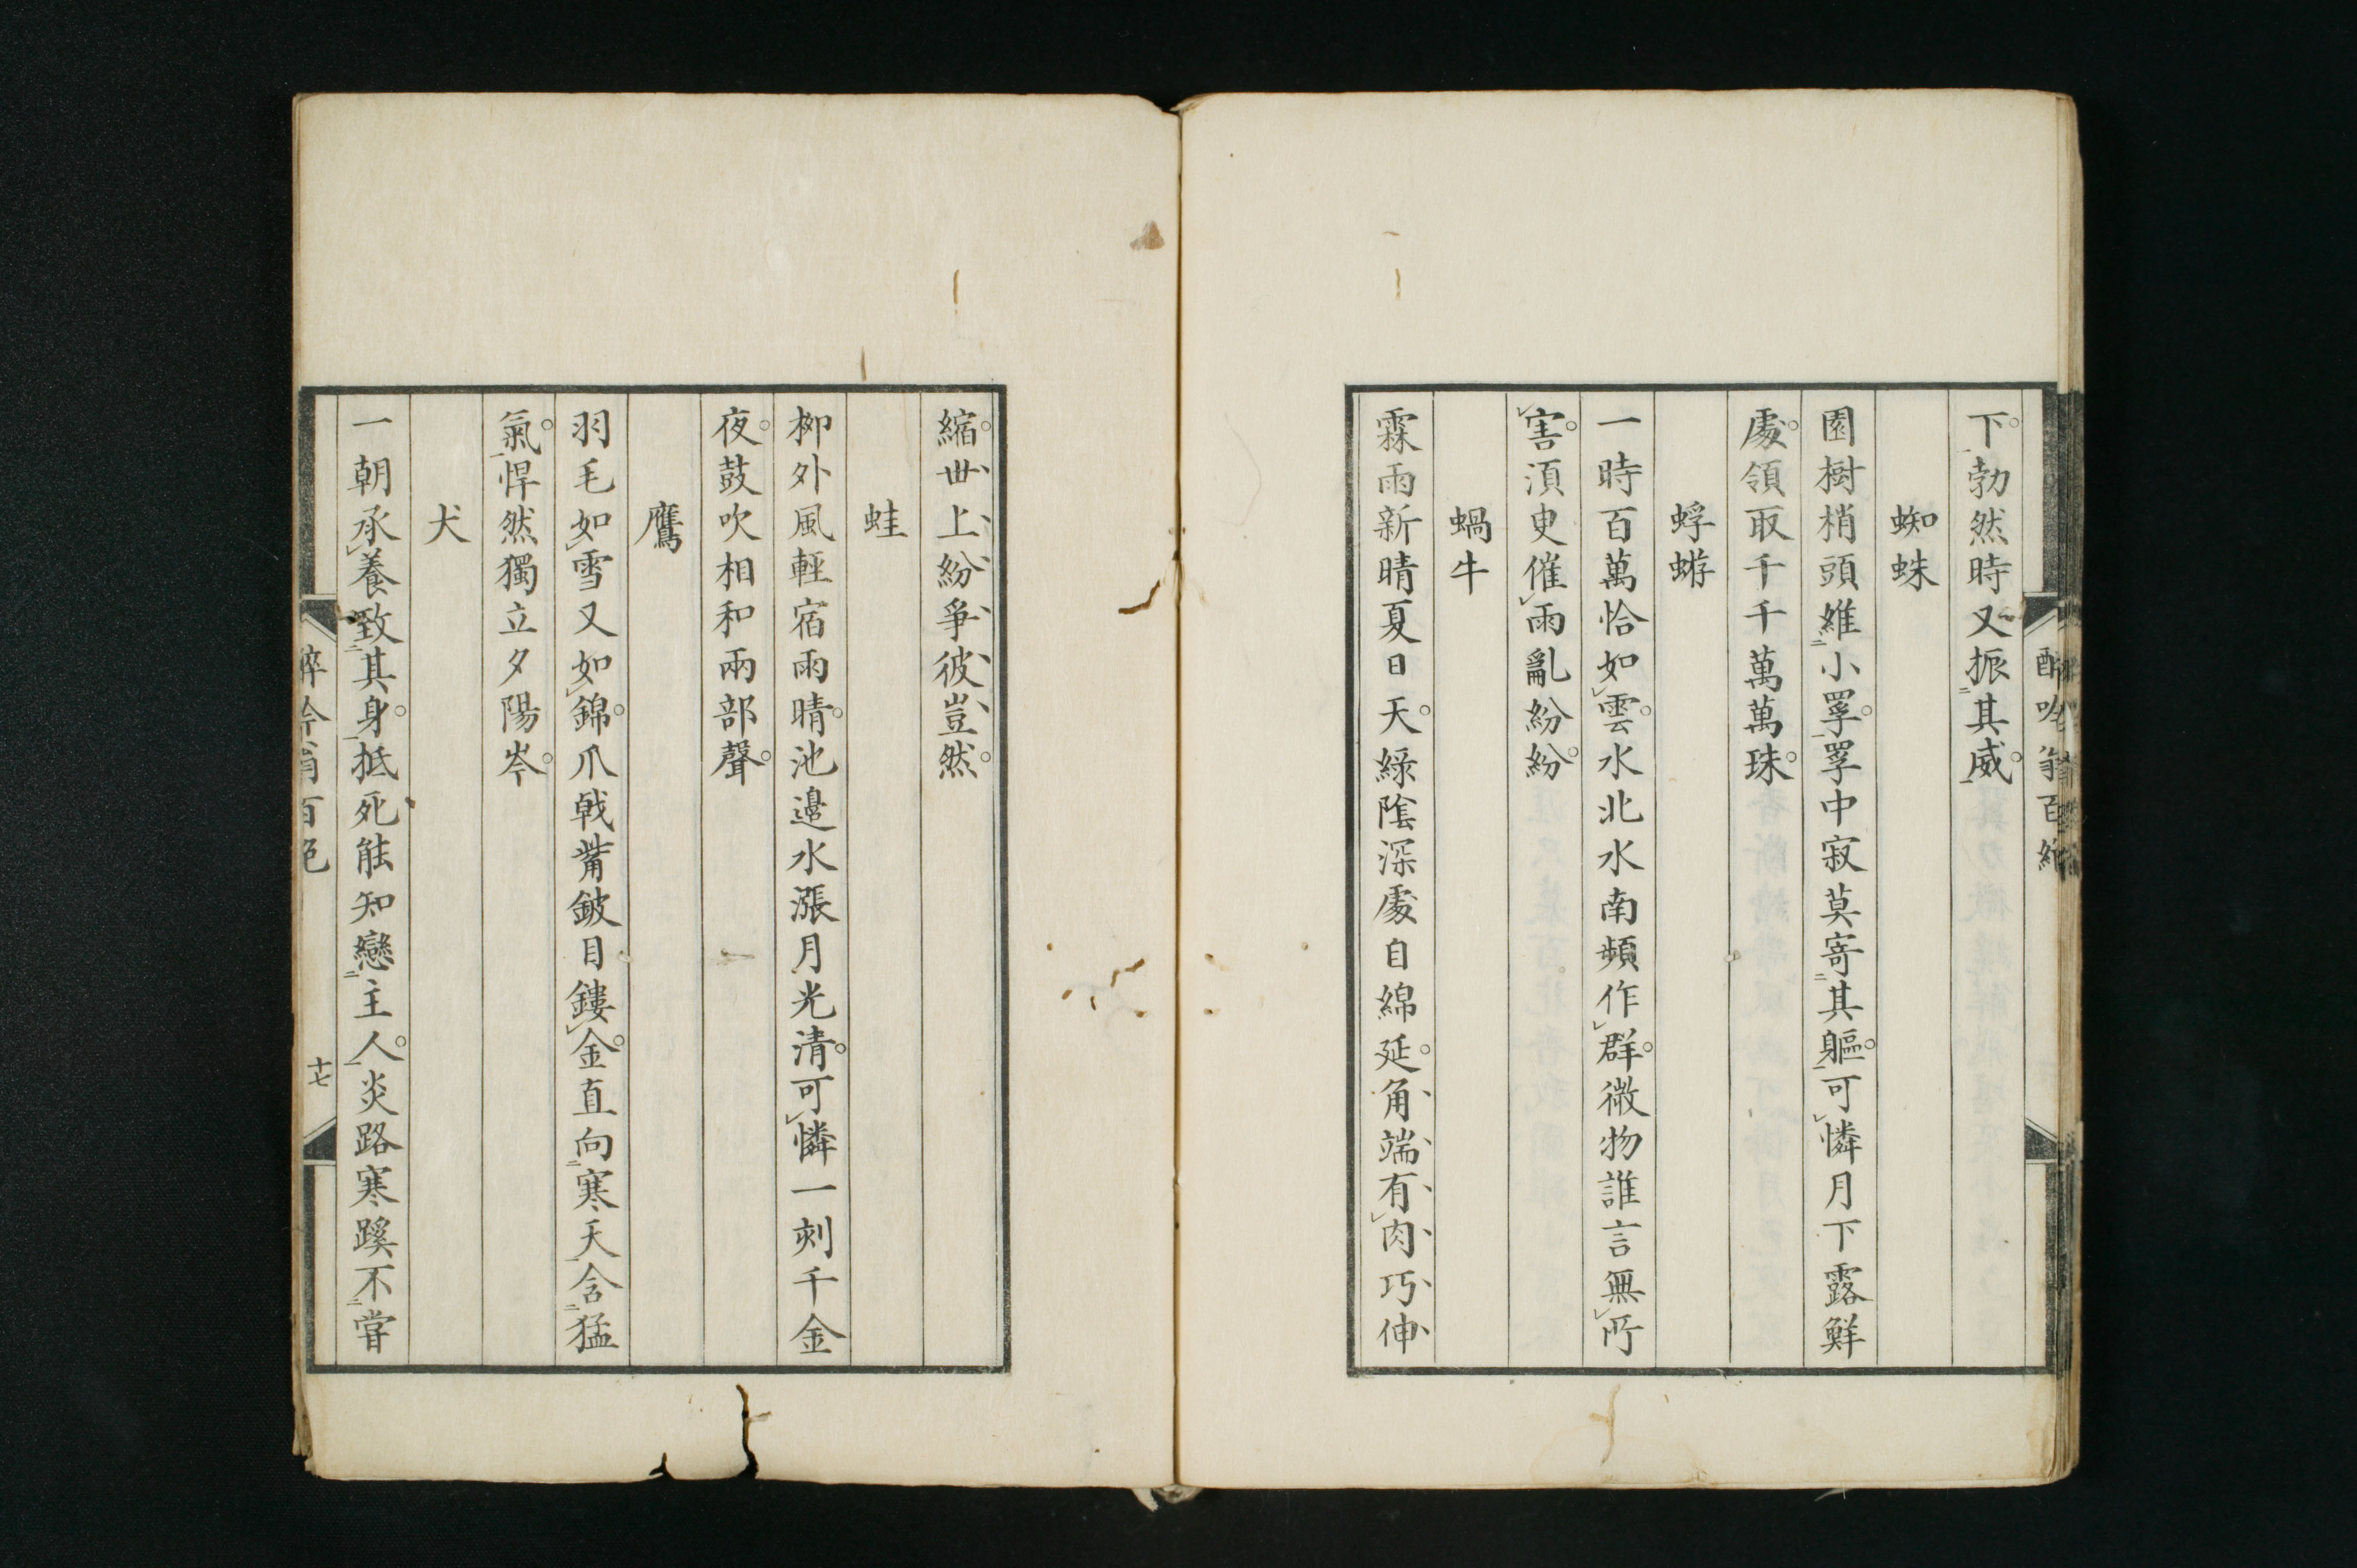 下勃然時又振其威
蜘蛛
園樹梢頭維小罦罦中寂莫寄其軀可憐月下露鮮
處領取千千萬萬珠
蜉蝣
一時百萬恰如雲水北水南頻作群微物誰言無所
害須臾催雨亂紛紛
蝸牛
霖雨新晴夏日天綠陰深處自綿延角端有肉巧伸
縮世上紛爭彼豈然
蛙
柳外風輕宿雨晴池邊水漲月光清可憐一刻千金
夜鼓吹相和兩部聲
鷹
羽毛如雪又如錦爪戟觜鈹目鏤金直向寒天含猛
氣悍然獨立夕陽岑
犬
一朝承養致其身抵死能知戀主人炎路寒蹊不嘗
醉吟翁百絕
十七